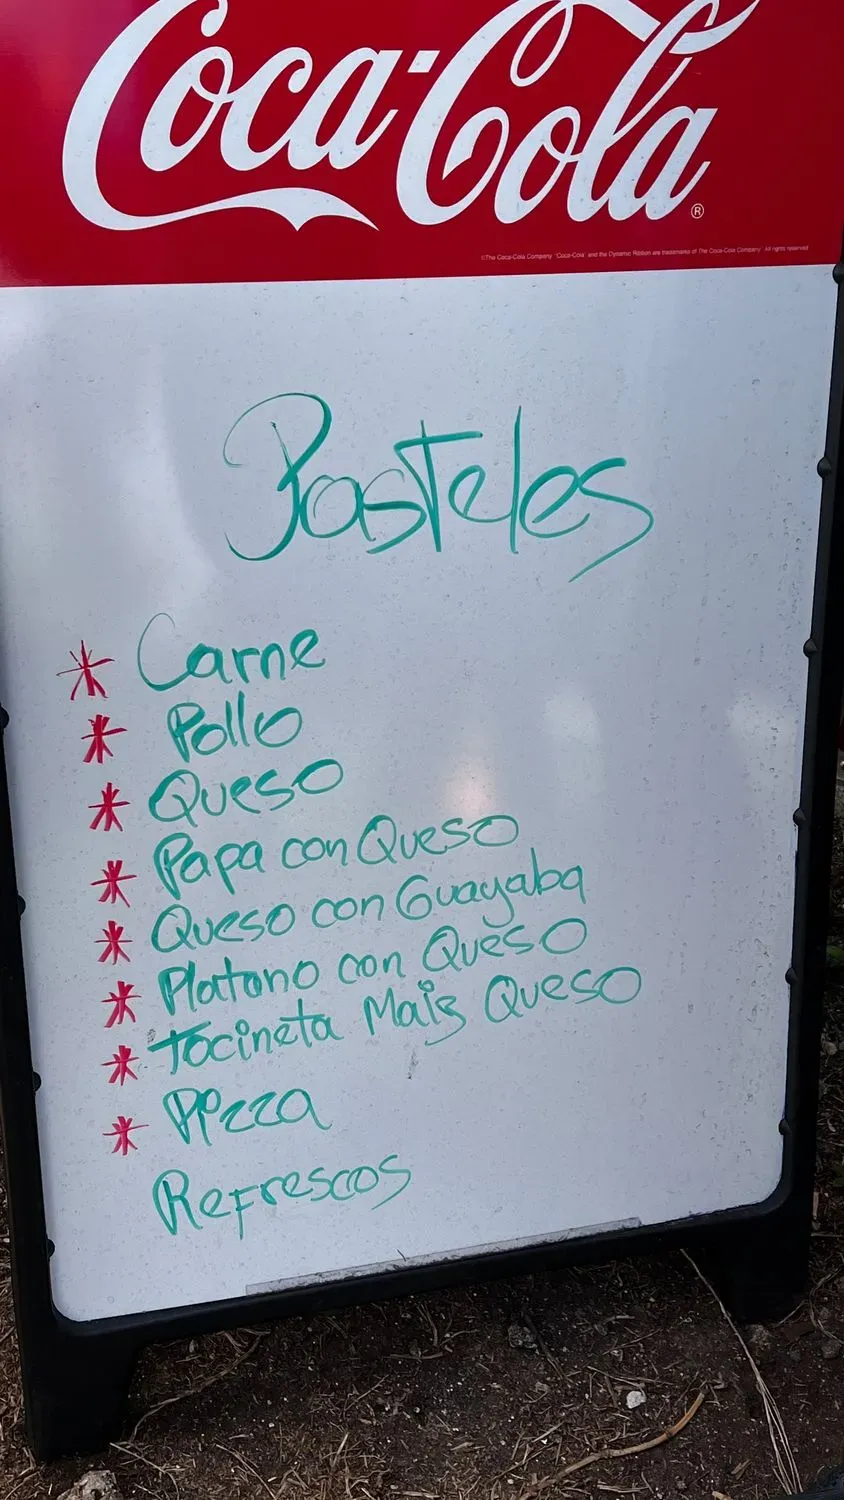 Coca-Cola ®
©The Coca-Cola Company "Coca-Cola" and the Dynamic Ribbon are trademarks of The Coca-Cola Company All rights reserved
Pasteles
* Carne
* Pollo
* Queso
* Papa con Queso
* Queso con Guayaba
* Platano con Queso
* Tocineta Maiz Queso
* Pizza
Refrescos